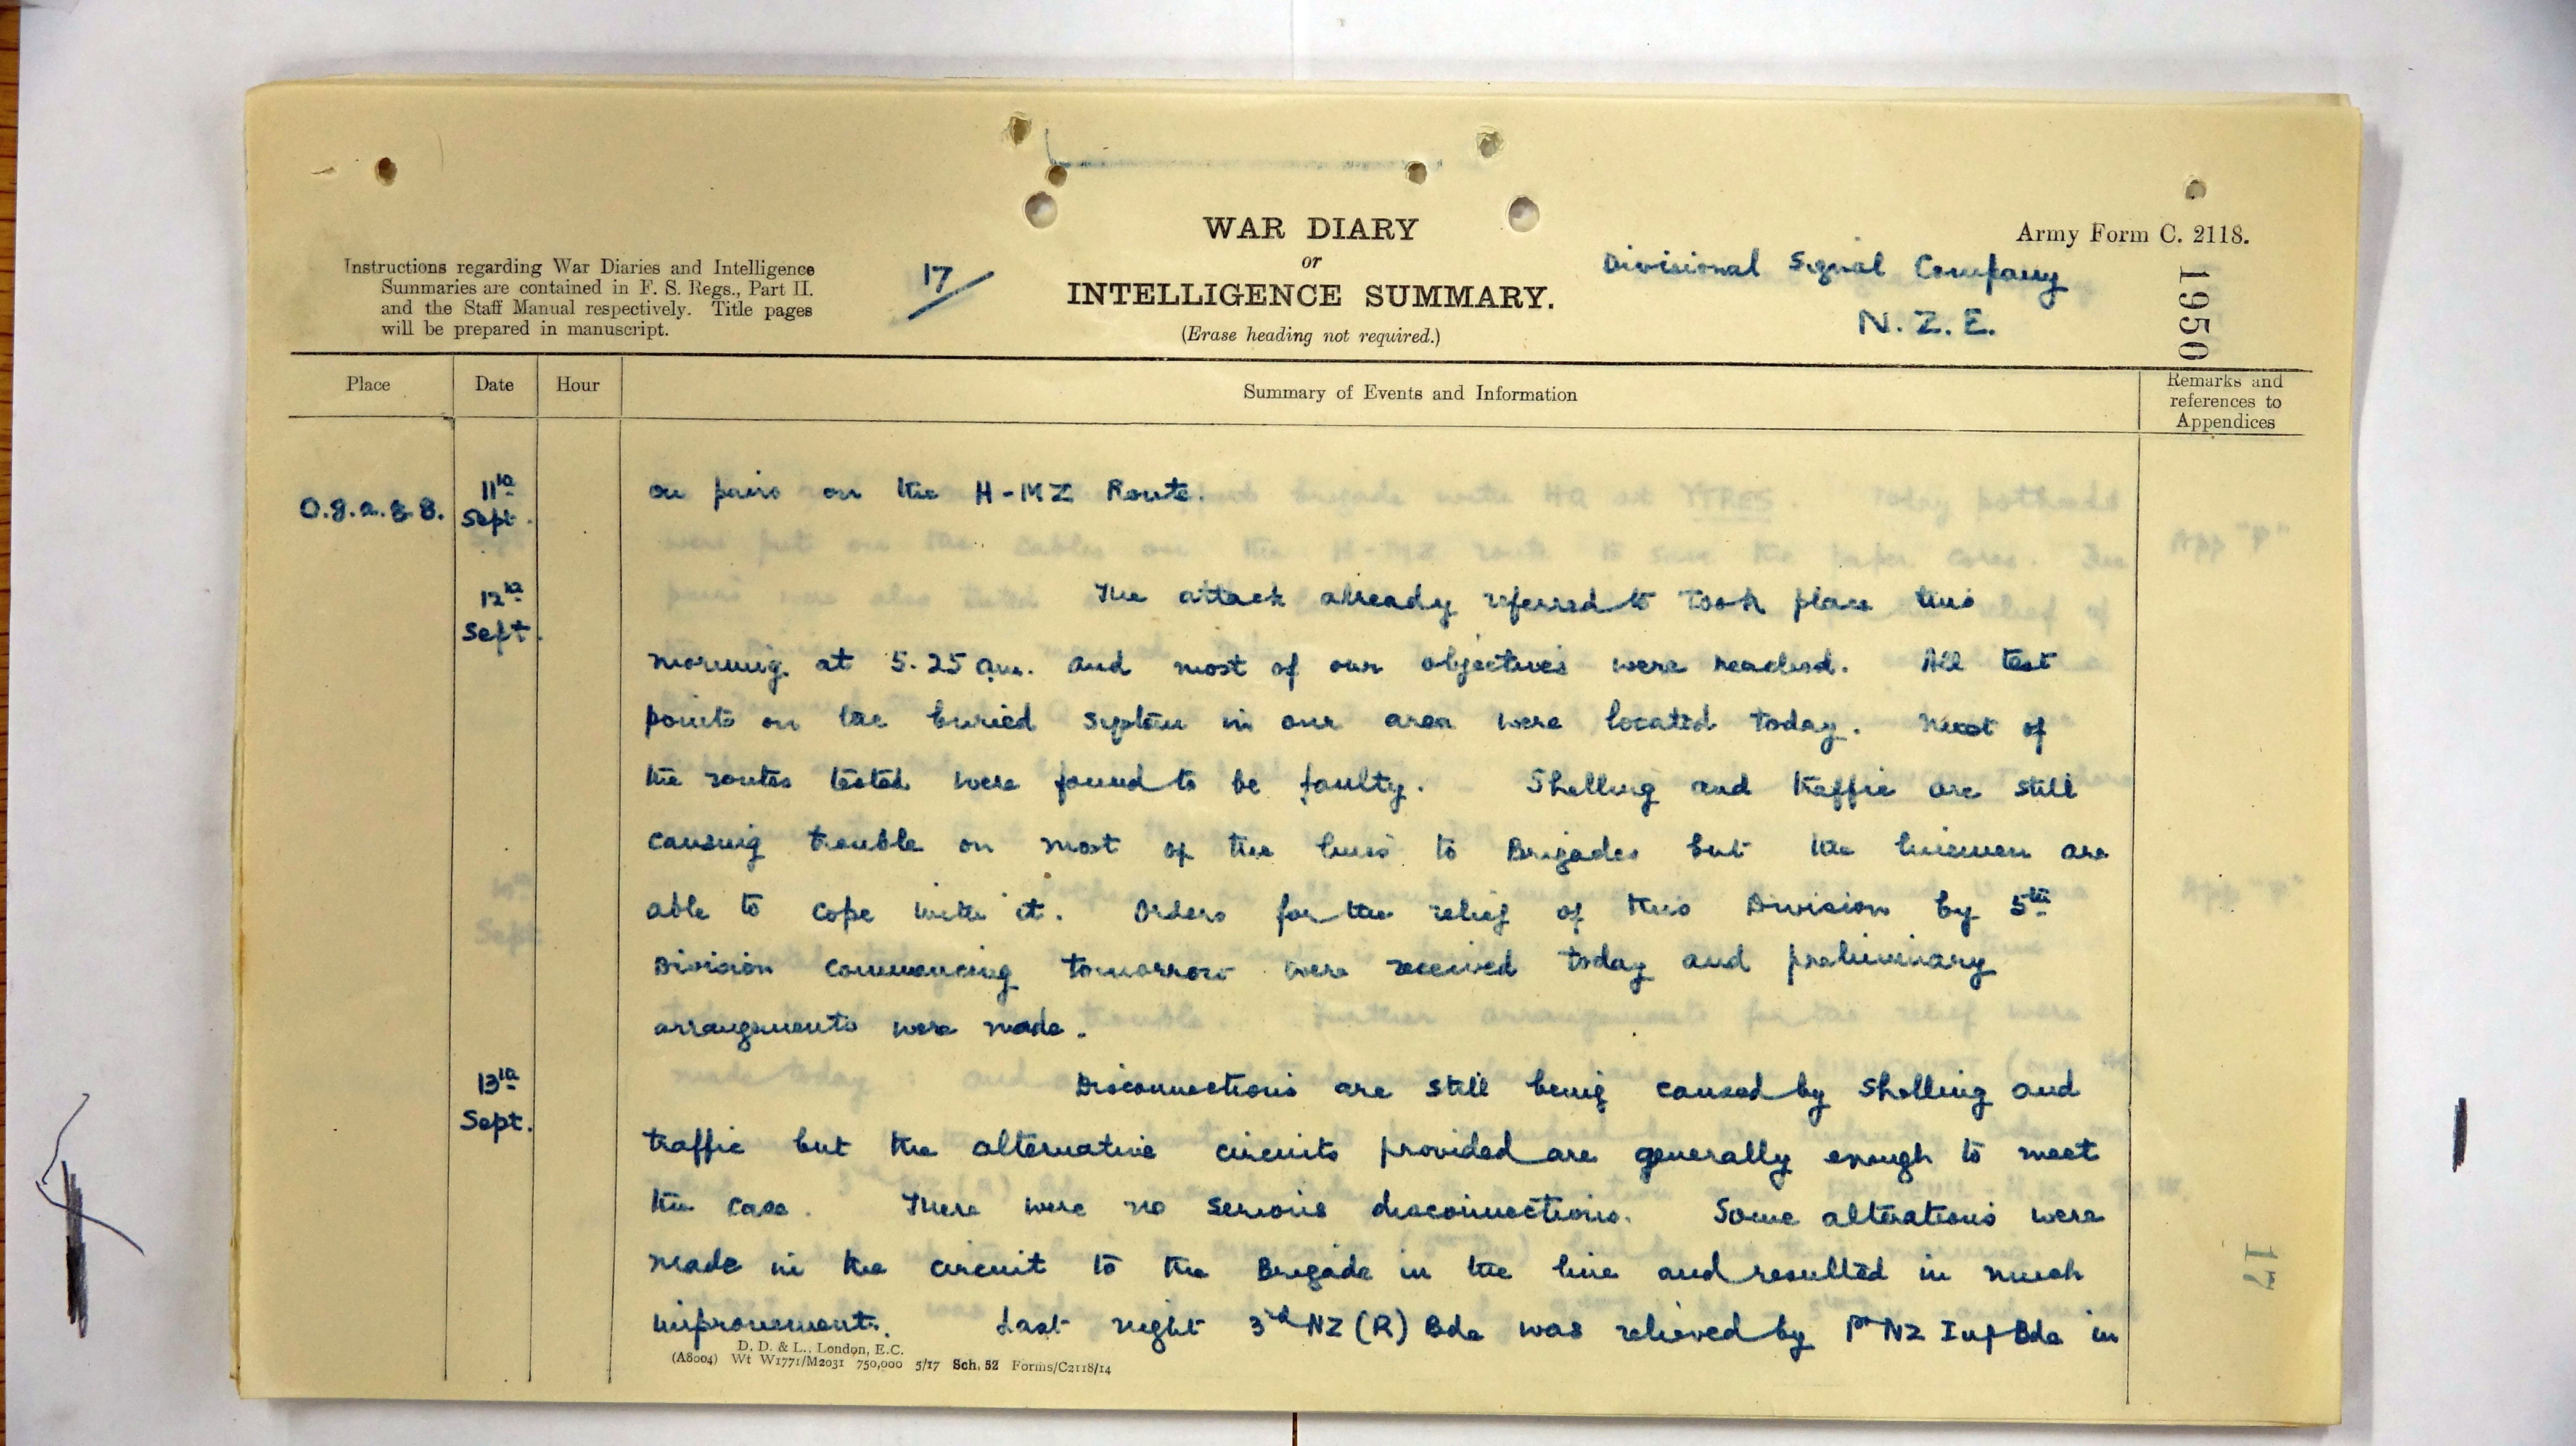 WAR DIARY
or
INTELLIGENCE SUMMARY.
(Erase heading not required.)
Army Form C. 2118.
Instructions regarding War Diaries and Intelligence
Summaries are contained in F. S. Regs., Part II.
and the Staff Manual respectively. Title pages
will be prepared in manuscript.
17/
Divisional Signal Company
N.Z.E.
1950
Place Date Hour Summary of Events and Information Remarks and
references to
Appendices
11th Sept. on pairs on the H-MZ Route.
12th Sept. The attack already referred to took place this
morning at 5.25 am. and most of our objectives were reached. All test
points on the buried system in our area were located today. Most of
the routes tested were found to be faulty. Shelling and traffic are still
causing trouble on most of the lines to Brigades but the linemen are
able to cope with it. Orders for the relief of this Division by 5th
Division commencing tomorrow were received today and preliminary
arrangements were made.
13th Sept. Disconnections are still being caused by shelling and
traffic but the alternative circuits provided are generally enough to meet
the case. There were no serious disconnections. Some alterations were
made in the circuit to the Brigade in the line and resulted in much
improvement. Last night 3rd NZ (R) Bde was relieved by 1st NZ Inf Bde in
D. D. & L., London, E.C.
(A8004) Wt W1771/M2031 750,000 5/17 Sch. 52 Forms/C2118/14
17